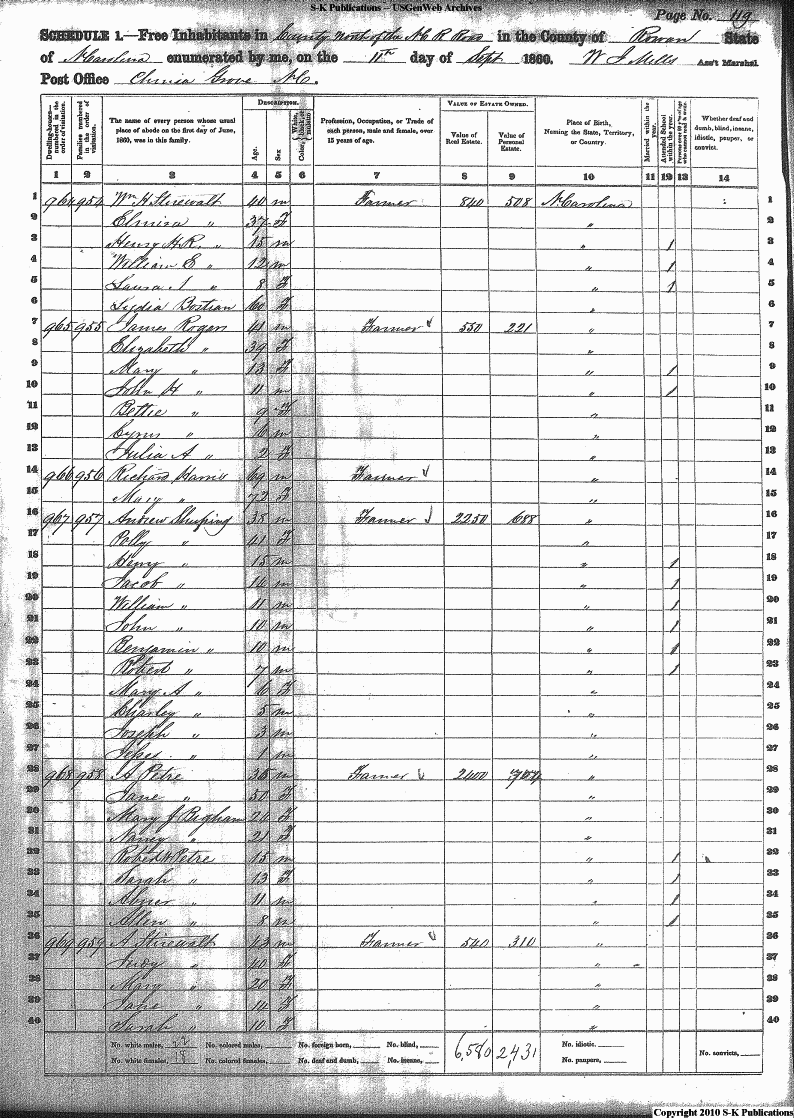 S-K Publications – USGenWeb Archives
Page No. 119
SCHEDULE 1.—Free Inhabitants in County North of the N C R Road in the County of Rowan State
of N Carolina enumerated by me, on the 11th day of Sept 1860. W J Mills Ass't Marshal.
Post Office China Grove N C.
Dwelling-houses—numbered in the order of visitation. Families numbered in the order of visitation. The name of every person whose usual place of abode on the first day of June, 1860, was in this family. DESCRIPTION. Age. Sex Color, White, black, or mulatto Profession, Occupation, or Trade of each person, male and female, over 15 years of age. VALUE OF ESTATE OWNED. Value of Real Estate. Value of Personal Estate. Place of Birth, Naming the State, Territory, or Country. Married within the year. Attended School within the year. Persons over 20 y'rs of age who cannot read & write. Whether deaf and dumb, blind, insane, idiotic, pauper, or convict.
1 2 3 4 5 6 7 8 9 10 11 12 13 14
1 964 954 Wm H Stirewalt 40 m Farmer 840 508 N Carolina 1
2 Elmira " 37 F " 2
3 Henry H R " 15 m " / 3
4 William E " 12 m " / 4
5 Laura A " 8 F " / 5
6 Lydia Bostian 60 F " 6
7 965 955 James Rogers 41 m Farmer 550 221 " 7
8 Elizabeth " 39 F " 8
9 Mary " 13 F " / 9
10 John H " 11 m " / 10
11 Bettie " 9 F " 11
12 Cyrus " 6 m " 12
13 Julia A " 2 F " 13
14 966 956 Richard Harris 69 m Farmer " 14
15 Mary " 72 F " 15
16 967 957 Andrew Shuping 38 m Farmer 2250 688 " 16
17 Polly " 41 F " 17
18 Henry " 15 m " / 18
19 Jacob " 14 m " / 19
20 William " 11 m " / 20
21 John " 10 m " / 21
22 Benjamin " 10 m " / 22
23 Robert " 7 m " / 23
24 Mary A " 6 F " 24
25 Charley " 5 m " 25
26 Joseph " 3 m " 26
27 " 1 m " 27
28 968 958 A Petre 35 m Farmer 2400 " 28
29 Jane " 50 F " 29
30 Mary J Bigham 26 F " 30
31 Nancy " 21 F " 31
32 Robert W Petre 15 m " / 32
33 Sarah " 13 F " / 33
34 Abner " 11 m " / 34
35 Allen " 8 m " / 35
36 969 959 A Stirewalt 43 m Farmer 540 310 " 36
37 Judy " 40 F " 37
38 Mary " 20 F " 38
39 Jane " 14 F " 39
40 Sarah " 10 F " 40
No. white males, 22 No. colored males, No. foreign born, No. blind, 6,580 2431 No. idiotic.
No. white females, 18 No. colored females, No. deaf and dumb, No. insane, No. paupers, No. convicts,
Copyright 2010 S-K Publications